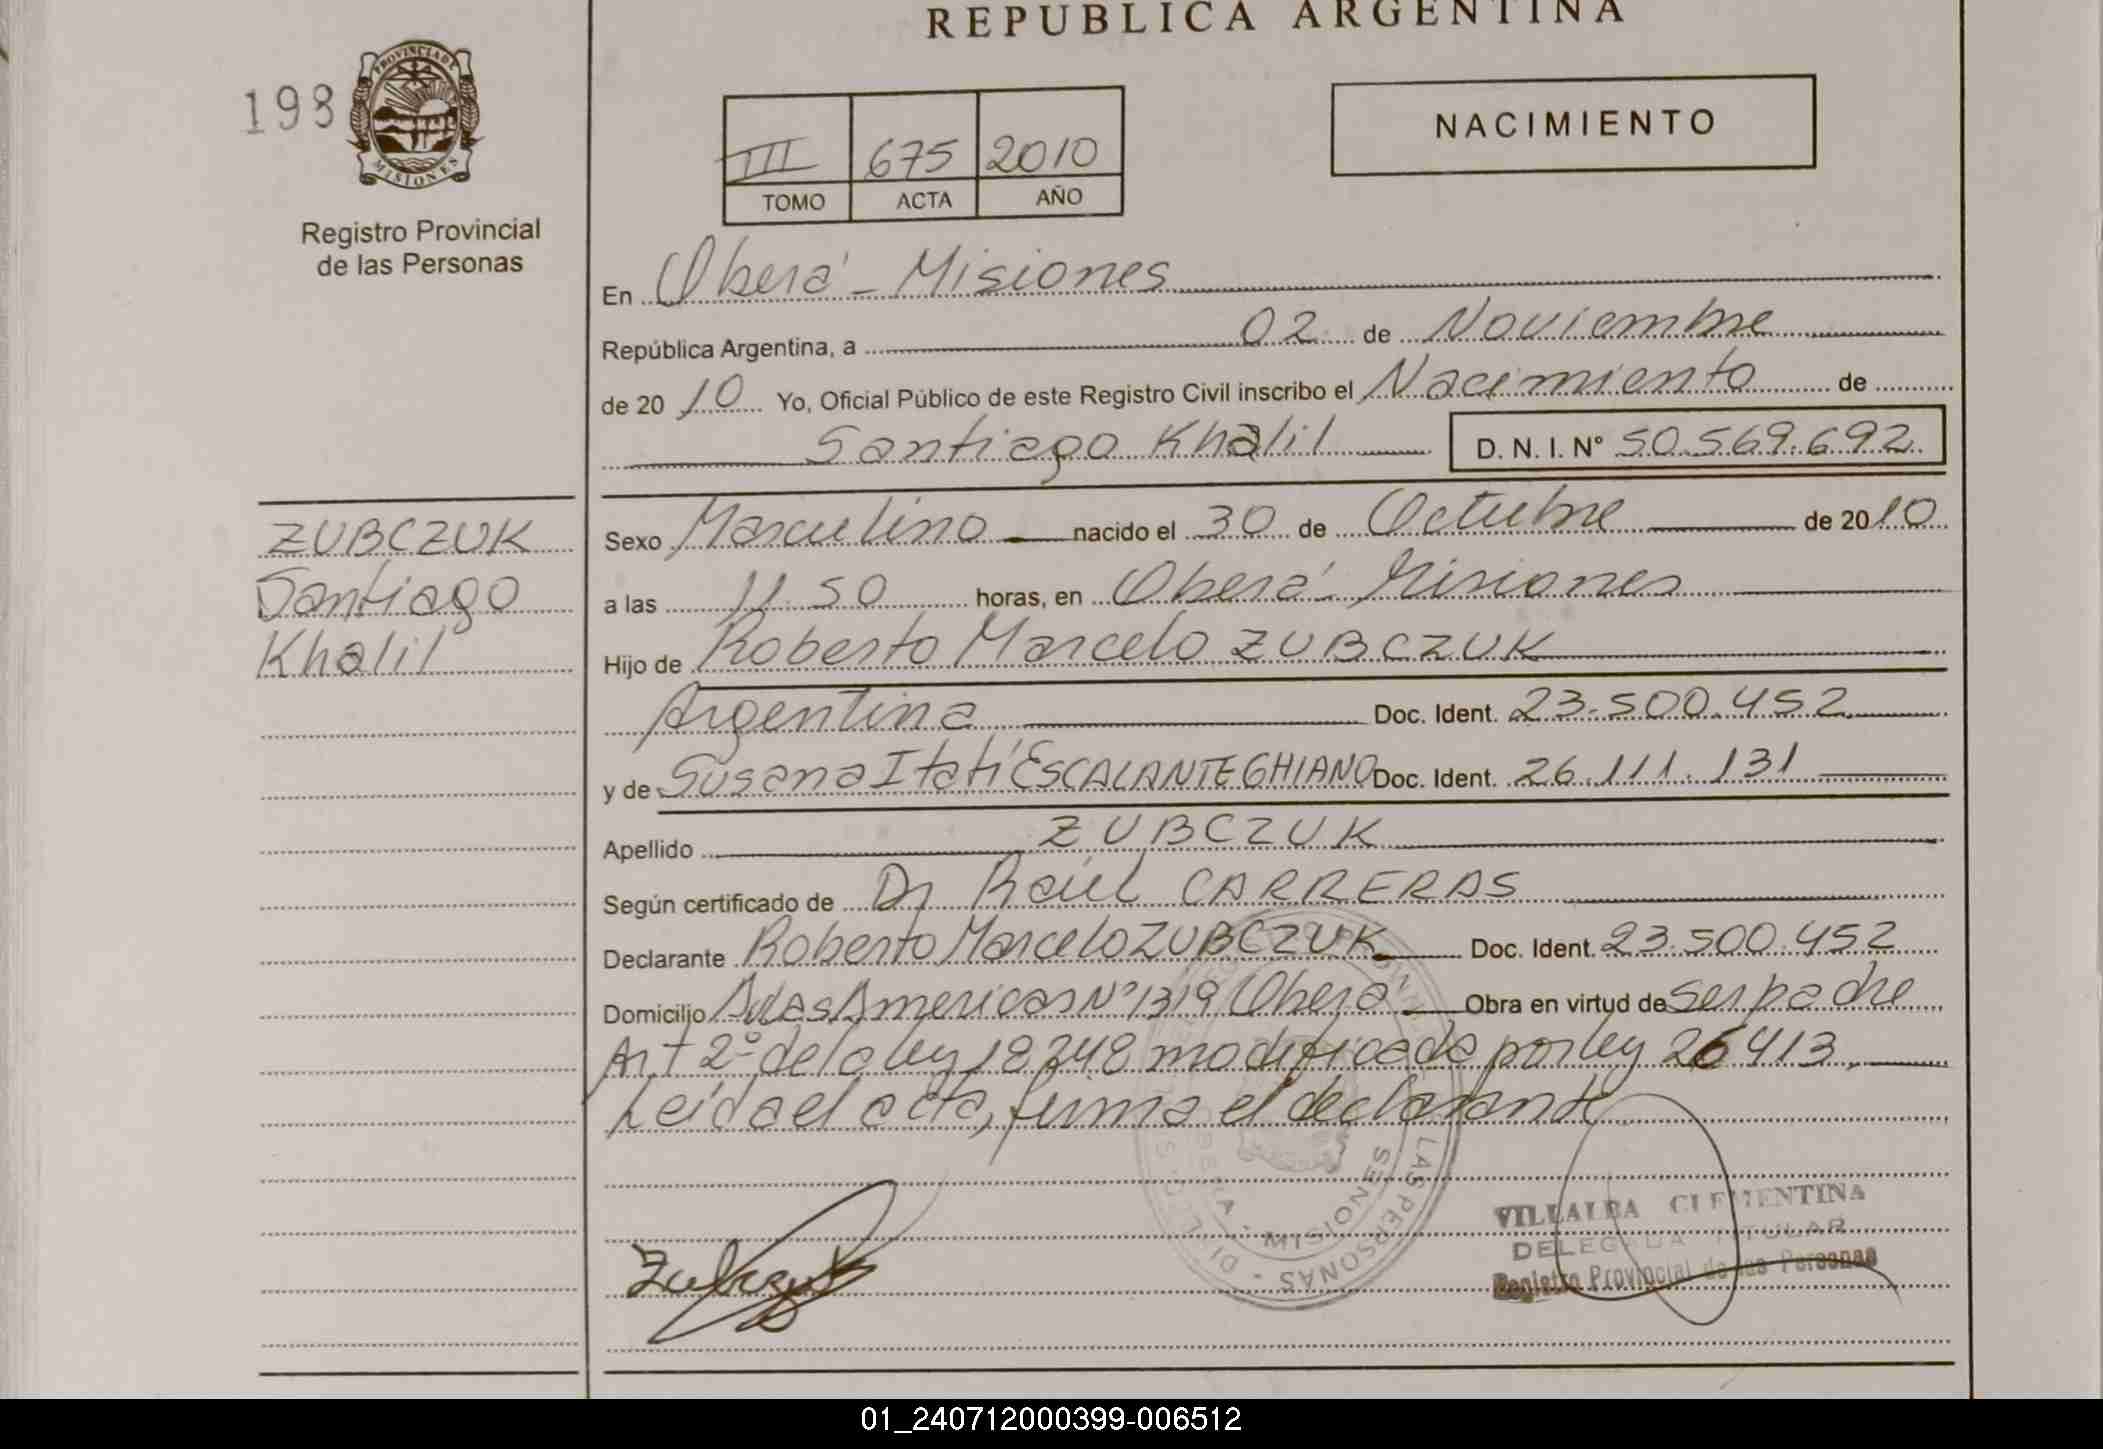 REPUBLICA ARGENTINA
198
PROVINCIA DE
MISIONES
Registro Provincial
de las Personas
III 675 2010
TOMO ACTA AÑO
NACIMIENTO
En Oberá - Misiones
República Argentina, a 02 de Noviembre
de 2010 Yo, Oficial Público de este Registro Civil inscribo el Nacimiento de
Santiago Khalil D. N. I. N° 50.569.692
ZUBCZUK
Santiago
Khalil
Sexo Masculino nacido el 30 de Octubre de 2010
a las 11.50 horas, en Oberá - Misiones
Hijo de Roberto Marcelo ZUBCZUK
Argentina Doc. Ident. 23.500.452
y de Susana Itatí ESCALANTE GHIANO Doc. Ident. 26.111.131
Apellido ZUBCZUK
Según certificado de Dr Raúl CARRERAS
Declarante Roberto Marcelo ZUBCZUK Doc. Ident. 23.500.452
Domicilio Av las Americas N° 1319 Oberá Obra en virtud de ser padre
Art 2° de la ley 18248 modificada por ley 26413.
Leída el acta, firma el declarante
LAS PERSONAS
MISIONES
VILLALBA CLEMENTINA
DELEGADA TITULAR
Registro Provincial de las Personas
01_240712000399-006512